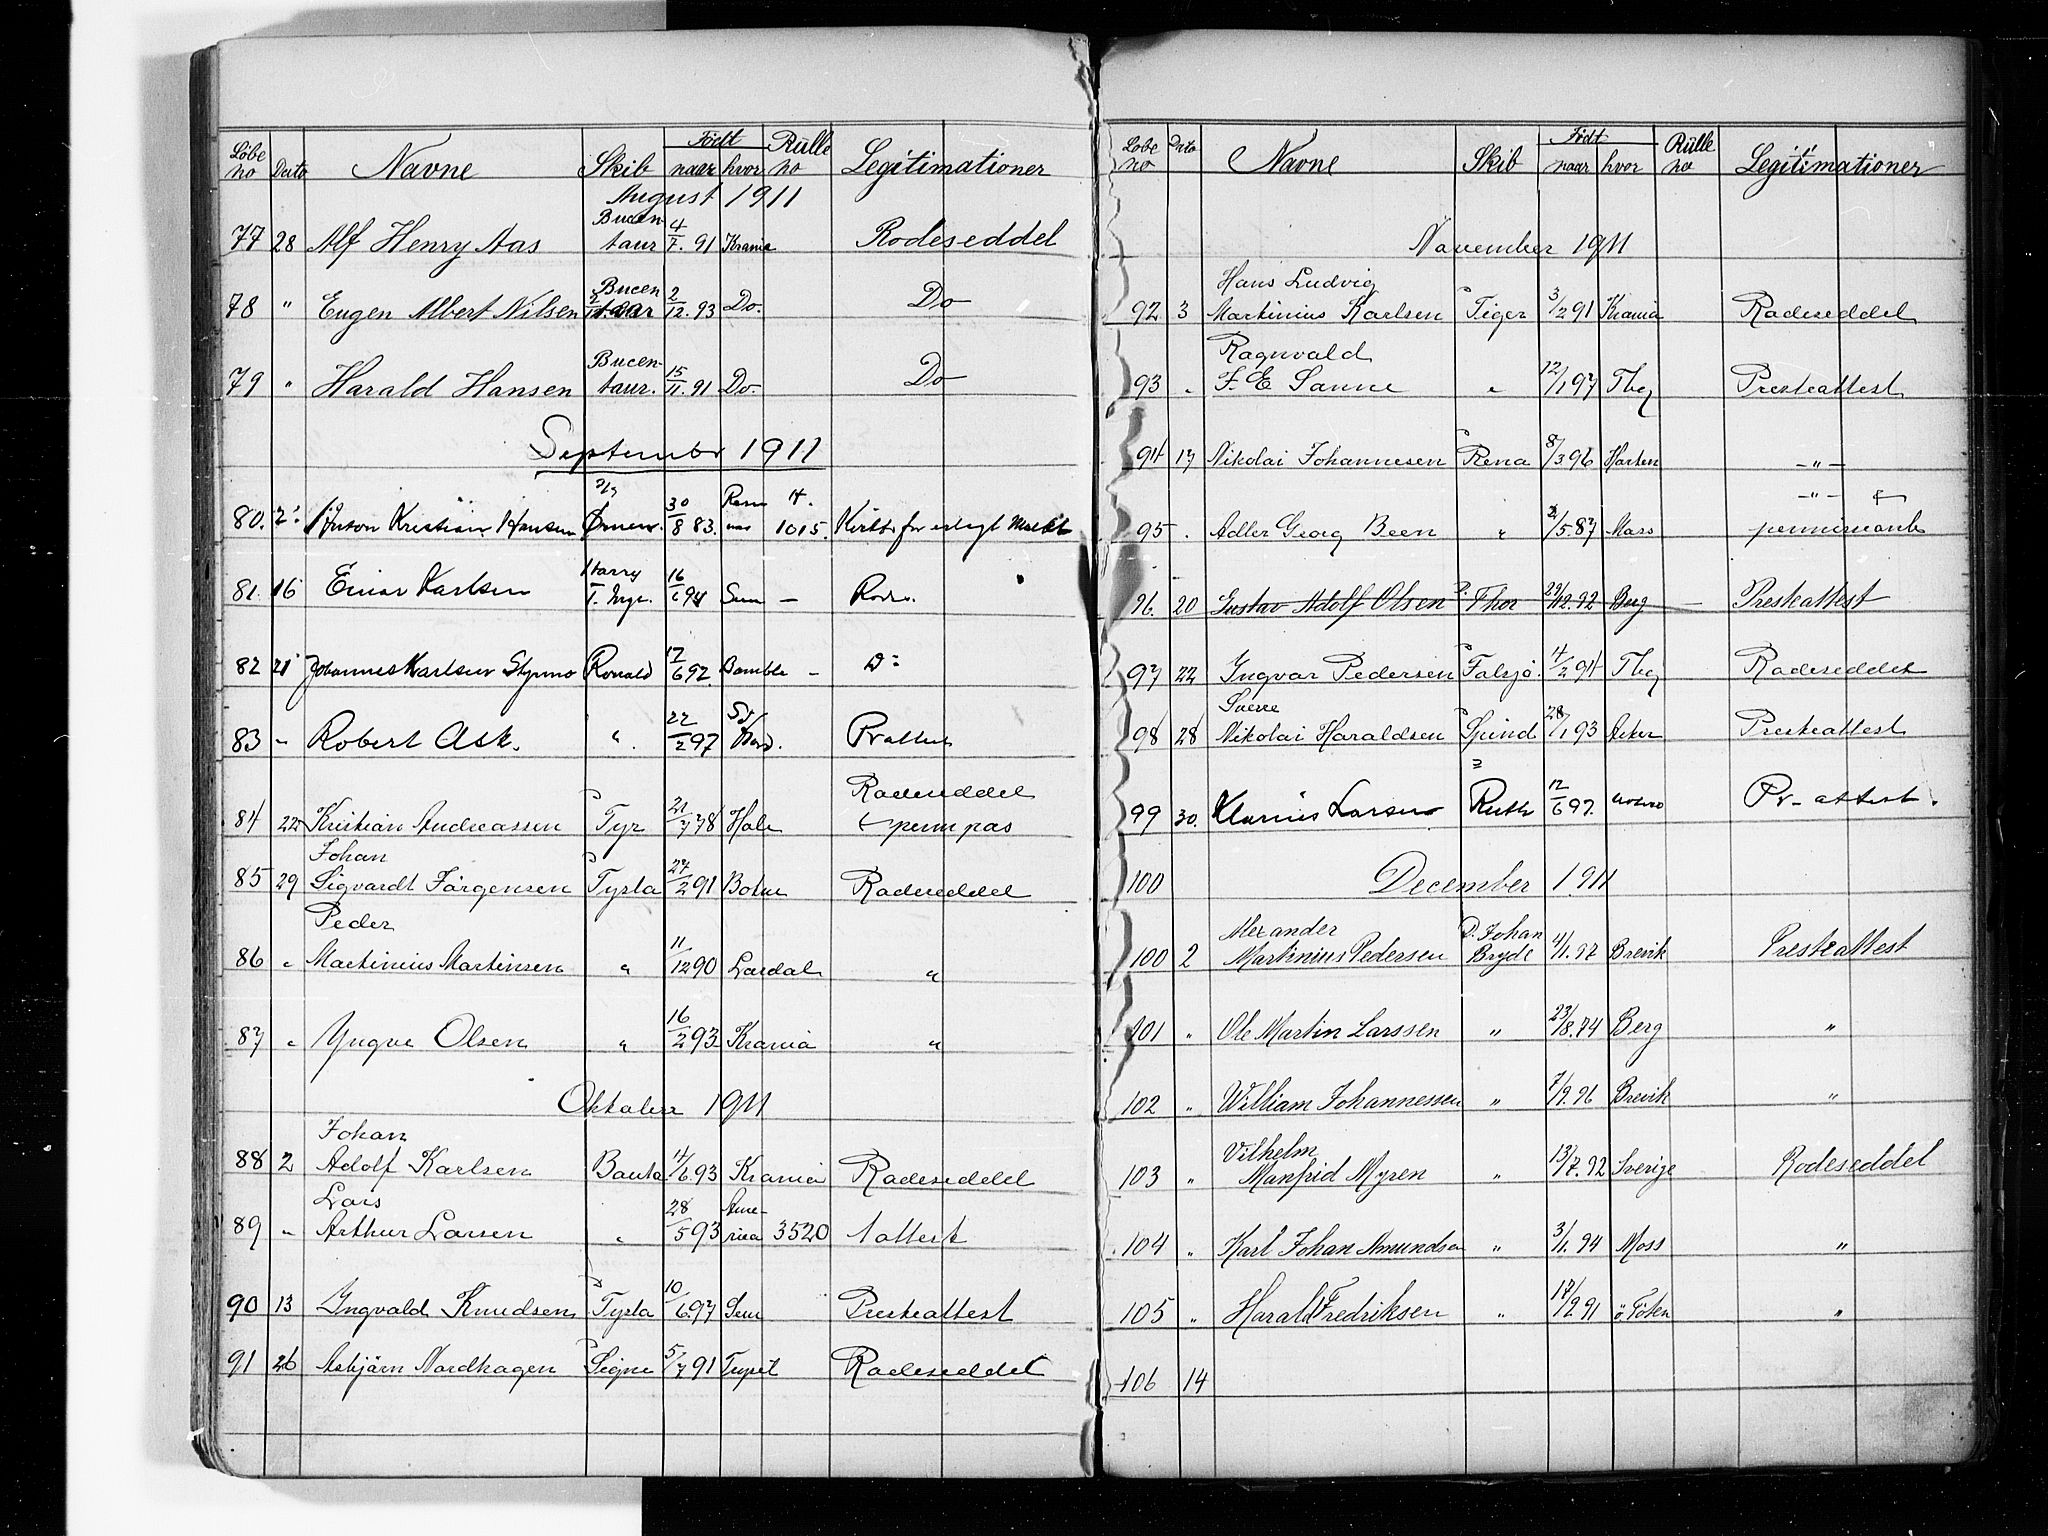 Løbe no Dato Navne Skib Født naar hvor Rulle no Legitimationer
August 1911
77 28 Alf Henry Aas Bucentaur 4/7. 91 Krania Rodeseddel
78 " Eugen Albert Nilsen Bucentaur 2/12. 93 Do. Do
79 " Harald Hansen Bucentaur. 15/11. 91 Do. Do
September 1911
80. Kristian Hansen Ørnen. 30/8 83. 1015.
81. 16 Einar Karlsen Harry 16/6 94 Sem — Rode.
82 21 Johannes Karlsen Ronald 17/6 92. Bamble —
83 " Robert Ask. ". 22/2 97 Prattest
84 22 Kristian Andreassen Tyr 21/7 78 Hole Rodeseddel
permpas
Johan
85 29 Sigvardt Jörgensen Tysla 27/2 91 Rodeseddel
Peder
86 " Martinius Martinsen " 11/12 90 Lardal "
87 " Yngve Olsen " 16/2 93 Krania "
Oktober 1911
Johan
88 2 Adolf Karlsen Bauta 4/6. 93 Krania Rodeseddel
Lars
89 " Arthur Larsen " 28/5 93 America 3520 Nattest
90 13 Ingvald Knudsen Tysla 10/6 97 Sem Presteattest
91 26 Asbjörn Nordhagen Signe 5/7 91 Trysil Rodeseddel
Løbe no Dato Navne Skib Født naar hvor Rulle no Legitimationer
November 1911
Hans Ludvig
92 3 Martinius Karlsen Tiger 3/2 91 Krania Rodeseddel
Ragnvald
93 " F. E Sanne " 12/1 97 Tbg Presteattest
94 17 Nikolai Johannesen Rena 8/3 96 Horten — " —
— " —
95 . Adler Georg Been " 2/5. 87 Moss
96. 20 Gustav Adolf Olsen Thor 29/12. 92 Berg — Presteattest
97 22 Ingvar Pedersen Falsjö. 4/2 94 Tbg Rodeseddel
Sverre
98 28 Nikolai Haraldsen Spind 28/1 93 Aker Presteattest
99 30. Klarius Larsen Ruth 12/6 97. Pr-attest.
100 December 1911
Alexander D. Johan
100 2 Martinius Pedersen Bryde 4/11. 97 Brevik Presteattest
101 " Ole Martin Larssen " 23/8. 74 Berg "
102 " William Johannessen " 7/9. 96 Brevik "
Vilhelm
103 " Manfrid Myren " 13/7. 92 Sverige Rodeseddel
104 " Karl Johan Amundsen " 3/11. 94 Moss "
105 " Harald Fredriksen " 17/9. 91 ö. Toten "
106 14